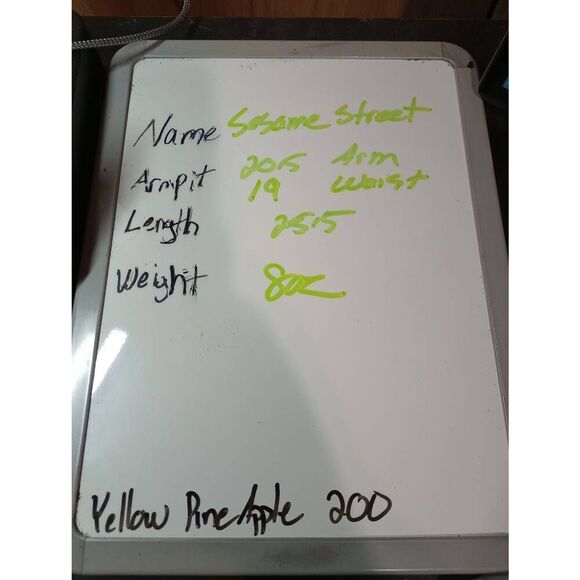 Name Sesame Street
Armpit 20.5 Arm
19 Waist
Length 25.5
Weight 8oz
Yellow PineApple 200